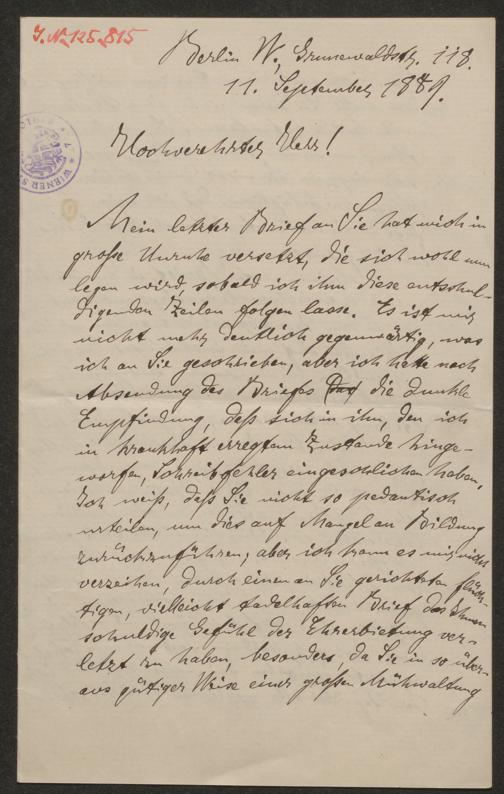 J.N. 125.815
Berlin W., Grunewaldstr. 118.
11. September 1889.
Hochverehrter Herr!
Mein letzter Brief an Sie hat mich in
große Unruhe versetzt, die sich wohl nun
legen wird, sobald ich ihm diese entschul-
digenden Zeilen folgen lasse. Es ist mir
nicht mehr deutlich gegenwärtig, was
ich an Sie geschrieben, aber ich hatte nach
Absendung des Briefes die dunkle
Empfindung, daß sich in ihn, den ich
in krankhaft erregtem Zustande hinge-
worfen, Schreibfehler eingeschlichen haben.
Ich weiß, daß Sie nicht so pedantisch
urteilen, um dies auf Mangel an Bildung
zurückzuführen, aber ich kann es mir nicht
verzeihen, durch einen an Sie gerichteten flüch-
tigen, vielleicht tadelhaften Brief das Ihnen
schuldige Gefühl der Ehrerbietung ver-
letzt zu haben, besonders, da Sie in so über-
aus gütiger Weise einer großen Mühwaltung
WIENER